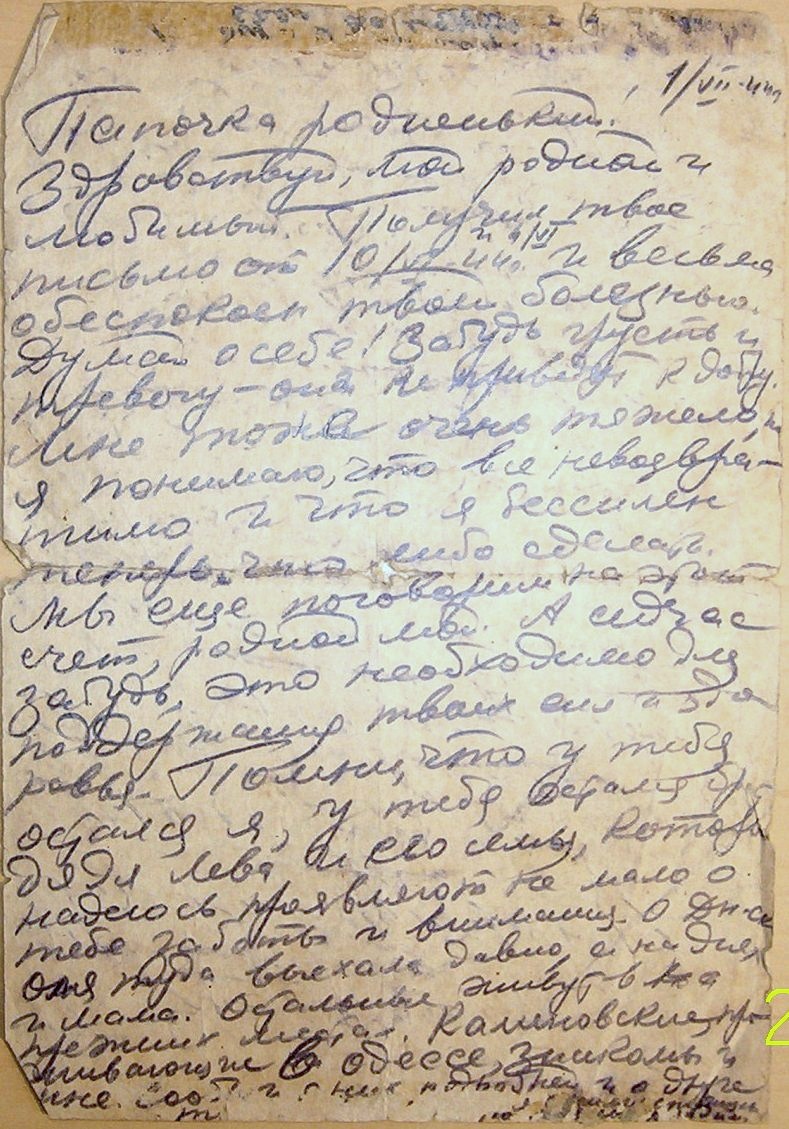 1/VII-44г.
Папочка родненький!
Здравствуй, мой родной и
любимый. Получил твое
письмо от 10/VI-44г. и весьма
и 9/VI
обеспокоен твоей болезнью.
Думай о себе! Забудь грусть и
тревогу – они не приведут к добру.
Мне тоже очень тяжело, но
я понимаю, что все невозвра-
тимо и что я бессилен
теперь что либо сделать.
Мы еще поговорим на этот
счет, родной мой. А сейчас
забудь, это необходимо для
поддержания твоих сил и здо-
ровья. Помни, что у тебя
остался я, у тебя остался брат
дядя Лева и его семья, которые
надеюсь проявляют не мало о
тебе заботы и внимания. О Дн-ск
Оля туда выехала давно, а на днях
и мама. Остальные живут на
прежних местах. Калиновские, про-
живающие в Одессе, знакомы и
мне. и с них подробней и о друге
2